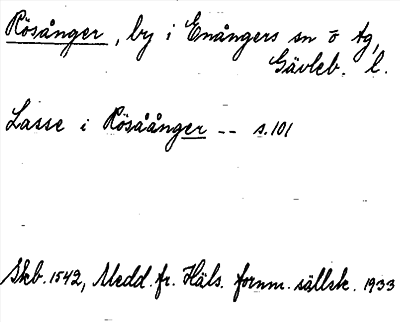 Rösånger, by i Enångers sn o tg,
Gävleb. l.
Lasse i Rösåånger -- s. 101
Skb. 1542, Medd. fr. Häls. fornm. sällsk. 1933